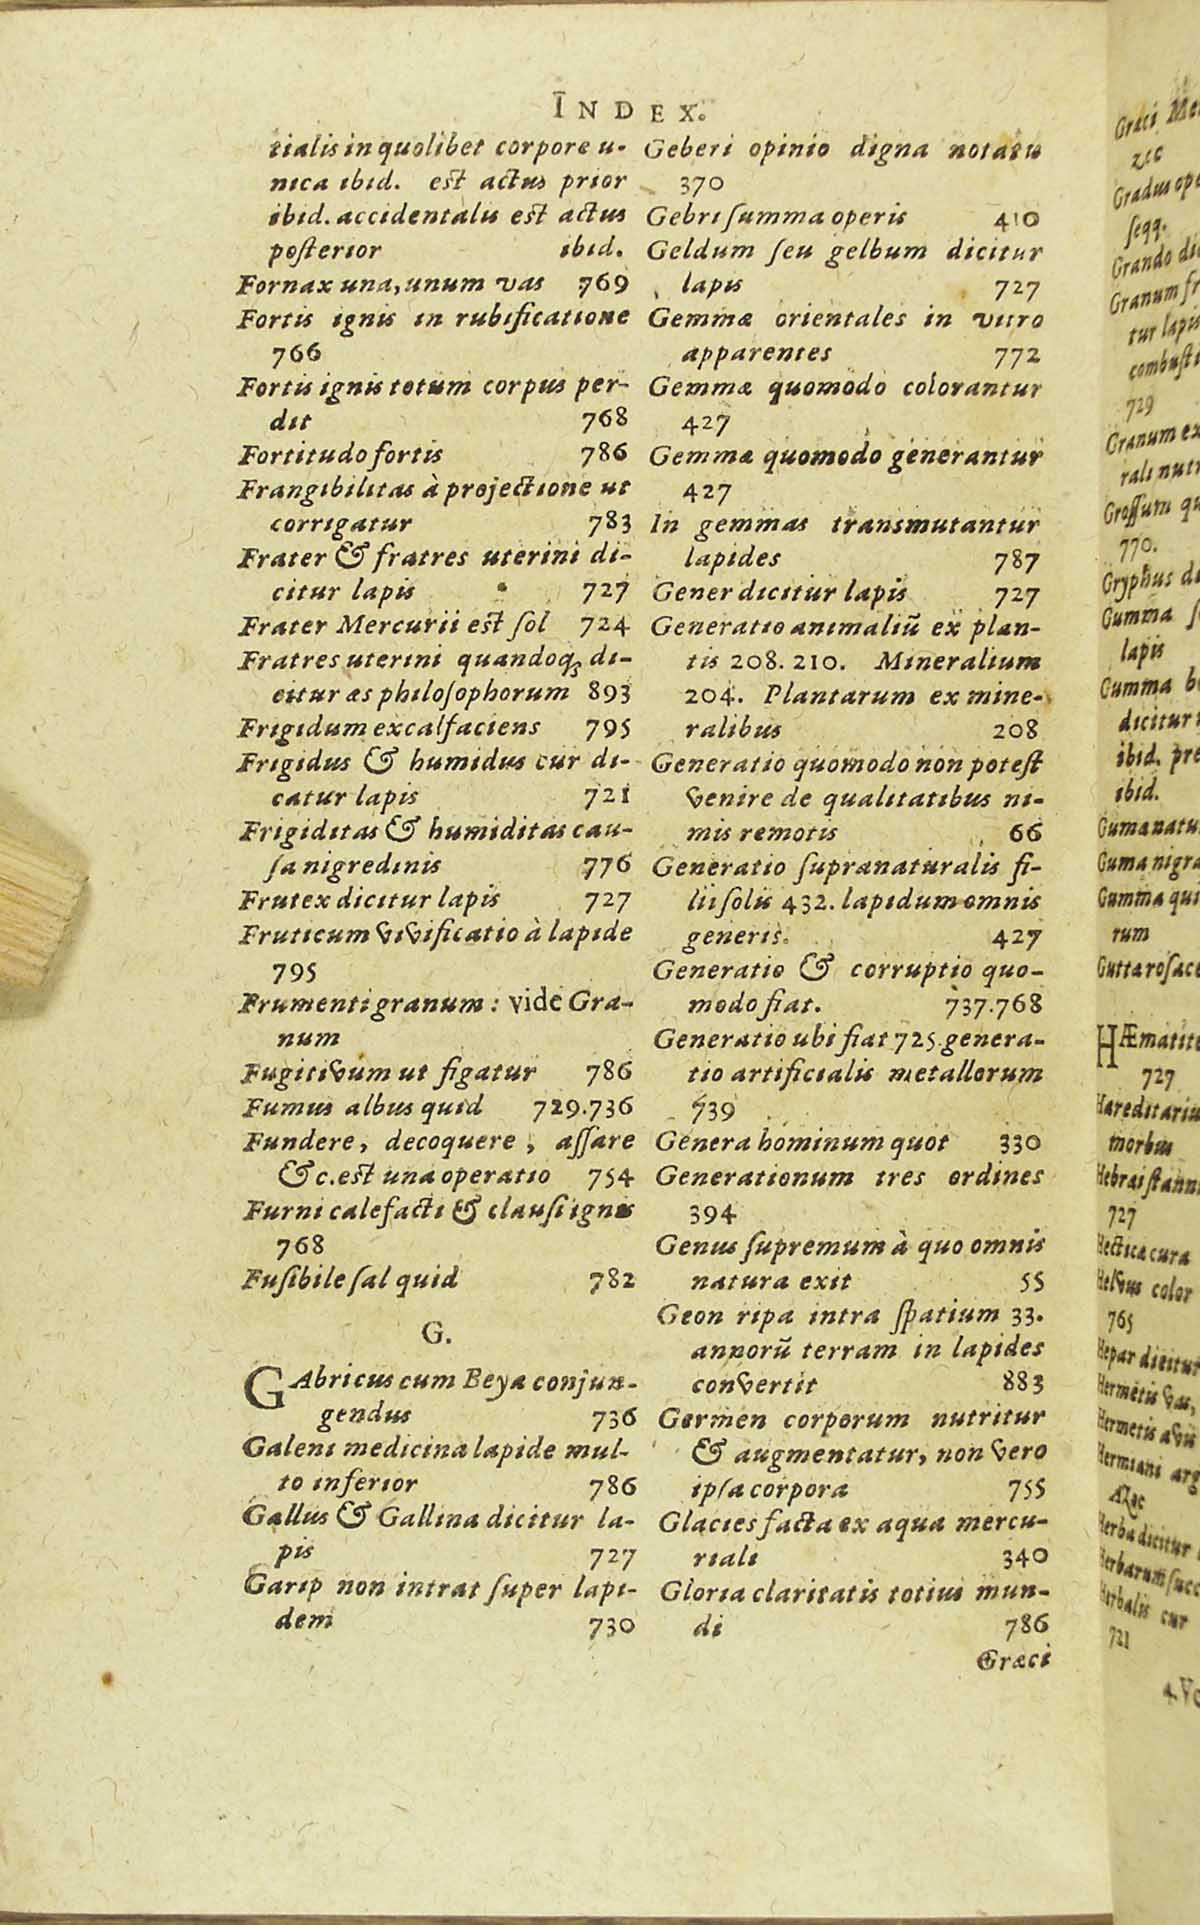 INDEX.
tialis in quolibet corpore u-
nica ibid. est actus prior
ibid. accidentalis est actus
posterior ibid.
Fornax una, unum vas 769
Fortis ignis in rubificatione
766
Fortis ignis totum corpus per-
dit 768
Fortitudo fortis 786
Frangibilitas à projectione ut
corrigatur 783
Frater & fratres uterini di-
citur lapis 727
Frater Mercurii est sol 724
Fratres uterini quandoq; di-
citur æs philosophorum 893
Frigidum excalfaciens 795
Frigidus & humidus cur di-
catur lapis 721
Frigiditas & humiditas cau-
sa nigredinis 776
Frutex dicitur lapis 727
Fruticum vivificatio à lapide
795
Frumenti granum: vide Gra-
num
Fugitivum ut figatur 786
Fumus albus quid 729.736
Fundere, decoquere, assare
&c. est una operatio 754
Furni calefacti & clausi ignis
768
Fusibile sal quid 782
G.
GAbricus cum Beya conjun-
gendus 736
Galeni medicina lapide mul-
to inferior 786
Gallus & Gallina dicitur la-
pis 727
Garip non intrat super lapi-
dem 730
Geberi opinio digna notatu
370
Gebri summa operis 410
Geldum seu gelbum dicitur
lapis 727
Gemmæ orientales in vitro
apparentes 772
Gemmæ quomodo colorantur
427
Gemmæ quomodo generantur
427
In gemmas transmutantur
lapides 787
Gener dicitur lapis 727
Generatio animaliũ ex plan-
tis 208. 210. Mineralium
204. Plantarum ex mine-
ralibus 208
Generatio quomodo non potest
venire de qualitatibus ni-
mis remotis 66
Generatio supranaturalis fi-
lii solis 432. lapidum omnis
generis. 427
Generatio & corruptio quo-
modo fiat. 737.768
Generatio ubi fiat 725. genera-
tio artificialis metallorum
739
Genera hominum quot 330
Generationum tres ordines
394
Genus supremum à quo omnis
natura exit 55
Geon ripa intra spatium 33.
annorũ terram in lapides
convertit 883
Germen corporum nutritur
& augmentatur, non vero
ipsa corpora 755
Glacies facta ex aqua mercu-
riali 340
Gloria claritatis totius mun-
di 786
Græci
Græci
Gradus
seqq.
Grando
Granum
tur lapis
combusti
729
Granum ex
rali
Grossum
770.
Gryphus
Gumma
lapis
Gumma
dicitur
ibid.
ibid.
Guma
Guma
Gumma
rum
Gutta
HÆmatite
727
morbus
727
Hectica cura
Helvus color
765
Hepar dicitur
Hermetis vas,
Hermetis avis
Herba dicitur
Herbarum
Herbalis cur
721